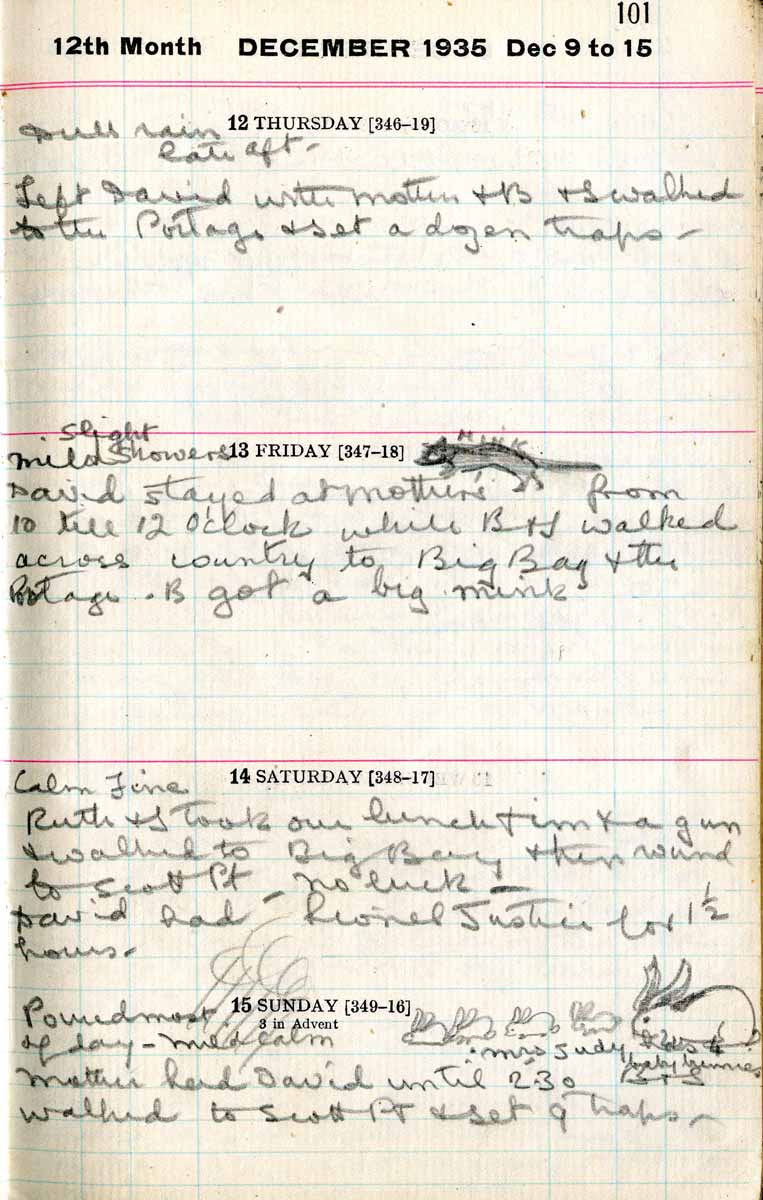 101
12th Month DECEMBER 1935 Dec 9 to 15
12 THURSDAY [346–19]
Dull rain
late aft –
Left David with mother & B & I walked
to the Portage & set a dozen traps –
Slight
mild Showers
13 FRIDAY [347–18]
MINK
David stayed at mother's from
10 till 12 O'clock while B & I walked
across country to Big Bay & the
Portage. B got a big mink
14 SATURDAY [348–17]
Calm Fine
Ruth & I took our lunch & a gun
& walked to Big Bay & then round
to Scott Pt – no luck –
David had Lionel Justice for 1½
hours.
15 SUNDAY [349–16]
3 in Advent
Poured most
of day – mild calm
Mrs Judy & 4
baby bunnies
Mother had David until 2.30 B & I
walked to Scott Pt & set 9 traps –